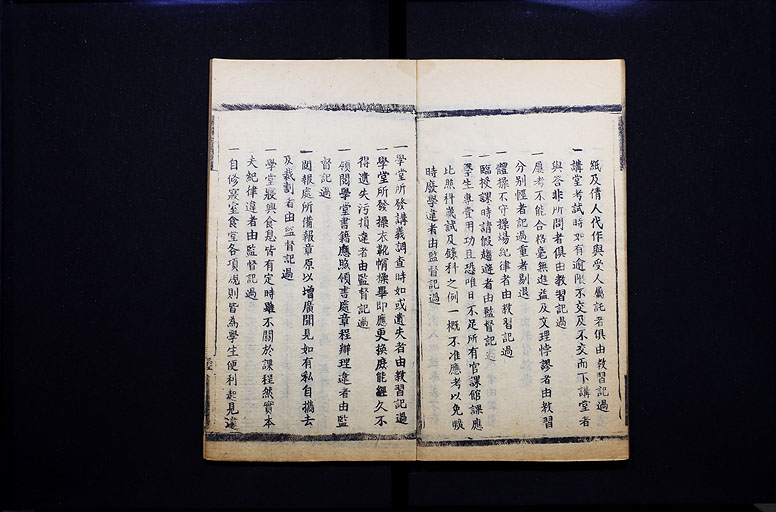 紙及倩人代作與受人屬託者俱由教習記過
一講堂考試時如有逾限不交及不交而下講堂者
與答非所問者俱由教習記過
一應考不能合格毫無進益及文理悖謬者由教習
分別輕者記過重者剔退
一體操不守操場紀律者由教習記過
一臨授課時請假趨避者由監督記過
一學生專費用功且恐唯日不足所有官課館課應
比照科歲試及錄科之例一概不准應考以免曠
時廢學違者由監督記過
一學堂所發講義調查時如或遺失者由教習記過
一學堂所發操衣靴帽操畢即應更換庶能經久不
得遺失污損違者由監督記過
一領閱學堂書籍應照領書處章程辦理違者由監
督記過
一閱報處所備報章原以增廣聞見如有私自攜去
及裁割者由監督記過
一學堂寢興食息皆有定時雖不關於課程然實本
夫紀律違者由監督記過
一自修寢室食堂各項規則皆為學生便利起見違